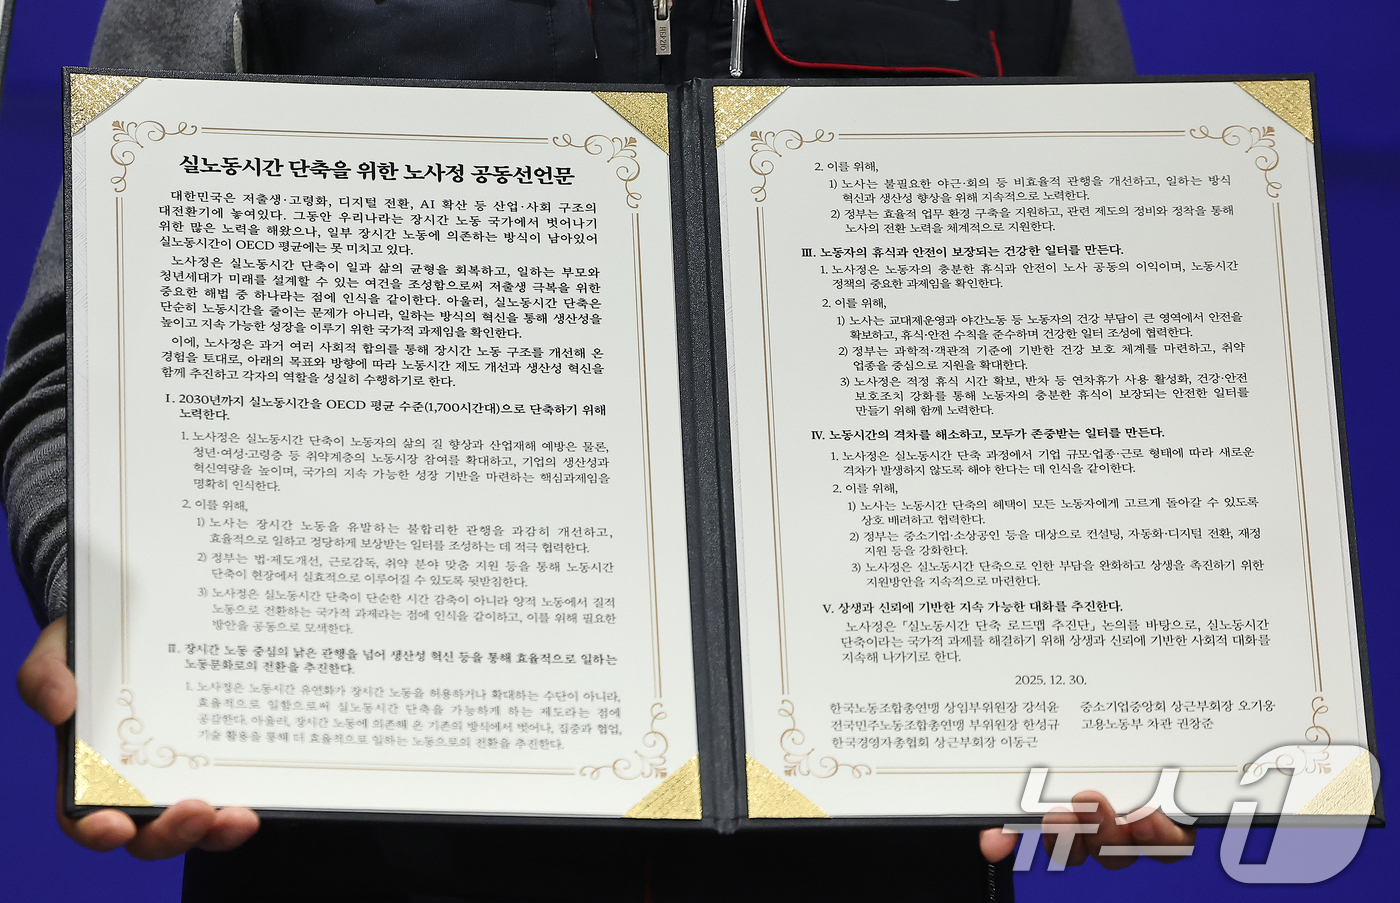 실노동시간 단축을 위한 노사정 공동선언문
대한민국은 저출생·고령화, 디지털 전환, AI 확산 등 산업·사회 구조의
대전환기에 놓여있다. 그동안 우리나라는 장시간 노동 국가에서 벗어나기
위한 많은 노력을 해왔으나, 일부 장시간 노동에 의존하는 방식이 남아있어
실노동시간이 OECD 평균에는 못 미치고 있다.
노사정은 실노동시간 단축이 일과 삶의 균형을 회복하고, 일하는 부모와
청년세대가 미래를 설계할 수 있는 여건을 조성함으로써 저출생 극복을 위한
중요한 해법 중 하나라는 점에 인식을 같이한다. 아울러, 실노동시간 단축은
단순히 노동시간을 줄이는 문제가 아니라, 일하는 방식의 혁신을 통해 생산성을
높이고 지속 가능한 성장을 이루기 위한 국가적 과제임을 확인한다.
이에, 노사정은 과거 여러 사회적 합의를 통해 장시간 노동 구조를 개선해 온
경험을 토대로, 아래의 목표와 방향에 따라 노동시간 제도 개선과 생산성 혁신을
함께 추진하고 각자의 역할을 성실히 수행하기로 한다.
Ⅰ. 2030년까지 실노동시간을 OECD 평균 수준(1,700시간대)으로 단축하기 위해
노력한다.
1. 노사정은 실노동시간 단축이 노동자의 삶의 질 향상과 산업재해 예방은 물론,
청년·여성·고령층 등 취약계층의 노동시장 참여를 확대하고, 기업의 생산성과
혁신역량을 높이며, 국가의 지속 가능한 성장 기반을 마련하는 핵심과제임을
명확히 인식한다.
2. 이를 위해,
1) 노사는 장시간 노동을 유발하는 불합리한 관행을 과감히 개선하고,
효율적으로 일하고 정당하게 보상받는 일터를 조성하는 데 적극 협력한다.
2) 정부는 법·제도개선, 근로감독, 취약 분야 맞춤 지원 등을 통해 노동시간
단축이 현장에서 실효적으로 이루어질 수 있도록 뒷받침한다.
3) 노사정은 실노동시간 단축이 단순한 시간 감축이 아니라 양적 노동에서 질적
노동으로 전환하는 국가적 과제라는 점에 인식을 같이하고, 이를 위해 필요한
방안을 공동으로 모색한다.
Ⅱ. 장시간 노동 중심의 낡은 관행을 넘어 생산성 혁신 등을 통해 효율적으로 일하는
노동문화로의 전환을 추진한다.
1. 노사정은 노동시간 유연화가 장시간 노동을 허용하거나 확대하는 수단이 아니라,
효율적으로 일함으로써 실노동시간 단축을 가능하게 하는 제도라는 점에
공감한다. 아울러, 장시간 노동에 의존해 온 기존의 방식에서 벗어나, 집중과 협업,
기술 활용을 통해 더 효율적으로 일하는 노동으로의 전환을 추진한다.
2. 이를 위해,
1) 노사는 불필요한 야근·회의 등 비효율적 관행을 개선하고, 일하는 방식
혁신과 생산성 향상을 위해 지속적으로 노력한다.
2) 정부는 효율적 업무 환경 구축을 지원하고, 관련 제도의 정비와 정착을 통해
노사의 전환 노력을 체계적으로 지원한다.
Ⅲ. 노동자의 휴식과 안전이 보장되는 건강한 일터를 만든다.
1. 노사정은 노동자의 충분한 휴식과 안전이 노사 공동의 이익이며, 노동시간
정책의 중요한 과제임을 확인한다.
2. 이를 위해,
1) 노사는 교대제운영과 야간노동 등 노동자의 건강 부담이 큰 영역에서 안전을
확보하고, 휴식·안전 수칙을 준수하며 건강한 일터 조성에 협력한다.
2) 정부는 과학적·객관적 기준에 기반한 건강 보호 체계를 마련하고, 취약
업종을 중심으로 지원을 확대한다.
3) 노사정은 적정 휴식 시간 확보, 반차 등 연차휴가 사용 활성화, 건강·안전
보호조치 강화를 통해 노동자의 충분한 휴식이 보장되는 안전한 일터를
만들기 위해 함께 노력한다.
Ⅳ. 노동시간의 격차를 해소하고, 모두가 존중받는 일터를 만든다.
1. 노사정은 실노동시간 단축 과정에서 기업 규모·업종·근로 형태에 따라 새로운
격차가 발생하지 않도록 해야 한다는 데 인식을 같이한다.
2. 이를 위해,
1) 노사는 노동시간 단축의 혜택이 모든 노동자에게 고르게 돌아갈 수 있도록
상호 배려하고 협력한다.
2) 정부는 중소기업·소상공인 등을 대상으로 컨설팅, 자동화·디지털 전환, 재정
지원 등을 강화한다.
3) 노사정은 실노동시간 단축으로 인한 부담을 완화하고 상생을 촉진하기 위한
지원방안을 지속적으로 마련한다.
Ⅴ. 상생과 신뢰에 기반한 지속 가능한 대화를 추진한다.
노사정은 「실노동시간 단축 로드맵 추진단」 논의를 바탕으로, 실노동시간
단축이라는 국가적 과제를 해결하기 위해 상생과 신뢰에 기반한 사회적 대화를
지속해 나가기로 한다.
2025. 12. 30.
한국노동조합총연맹 상임부위원장 강석윤 중소기업중앙회 상근부회장 오기웅
전국민주노동조합총연맹 부위원장 한성규 고용노동부 차관 권창준
한국경영자총협회 상근부회장 이동근
뉴스1